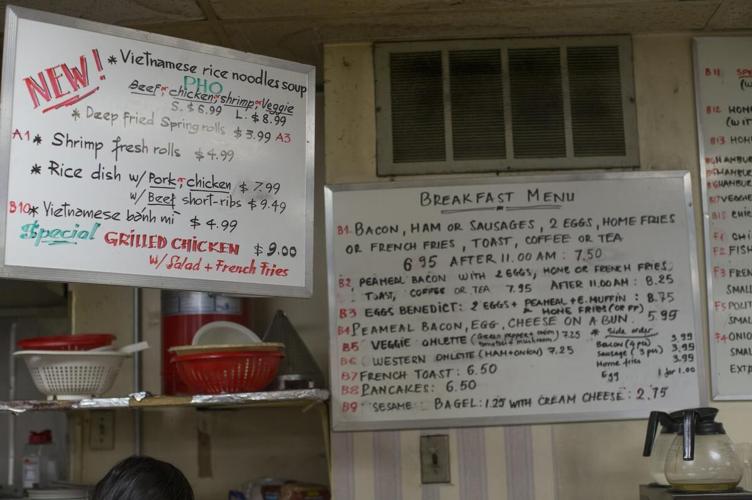 NEW! * Vietnamese rice noodles soup
PHO
Beef, chicken, shrimp, Veggie
S. $6.99 L. $8.99
* Deep fried Spring rolls $3.99 A3
A1 * Shrimp fresh rolls $4.99
* Rice dish w/ Pork, chicken $7.99
w/ Beef short-ribs $9.49
B10 * Vietnamese bánh mì $4.99
Special GRILLED CHICKEN $9.00
w/ Salad + French Fries
BREAKFAST MENU
B1 BACON, HAM OR SAUSAGES, 2 EGGS, HOME FRIES
OR FRENCH FRIES, TOAST, COFFEE OR TEA
6 95 AFTER 11.00 AM : 7.50
B2 PEAMEAL BACON WITH 2 EGGS, HOME OR FRENCH FRIES,
TOAST, COFFEE OR TEA 7.95 AFTER 11.00AM : 8.25
B3 EGGS BENEDICT: 2 EGGS + PEAMEAL + E.MUFFIN : 8.75
& HOME FRIES (OR FF)
B4 PEAMEAL BACON, EGG, CHEESE ON A BUN. 5.99
B5 VEGGIE OMLETTE (Green pepper + onion 7.25
tomato & mushroom)
B6 WESTERN OMLETTE (HAM + ONION) 7.25
B7 FRENCH TOAST: 6.50
B8 PANCAKES: 6.50
B9 SESAME BAGEL: 1.25 WITH CREAM CHEESE: 2.75
* Side order
Bacon (4 pcs) 3.99
Sausage (3 pcs) 3.99
Home fries 3.99
Egg 1 for 1.00
B11
B12
B13
B15
F1
F2 FISH
F3
SMALL
SMALL
ONIO
SMALL
EXT